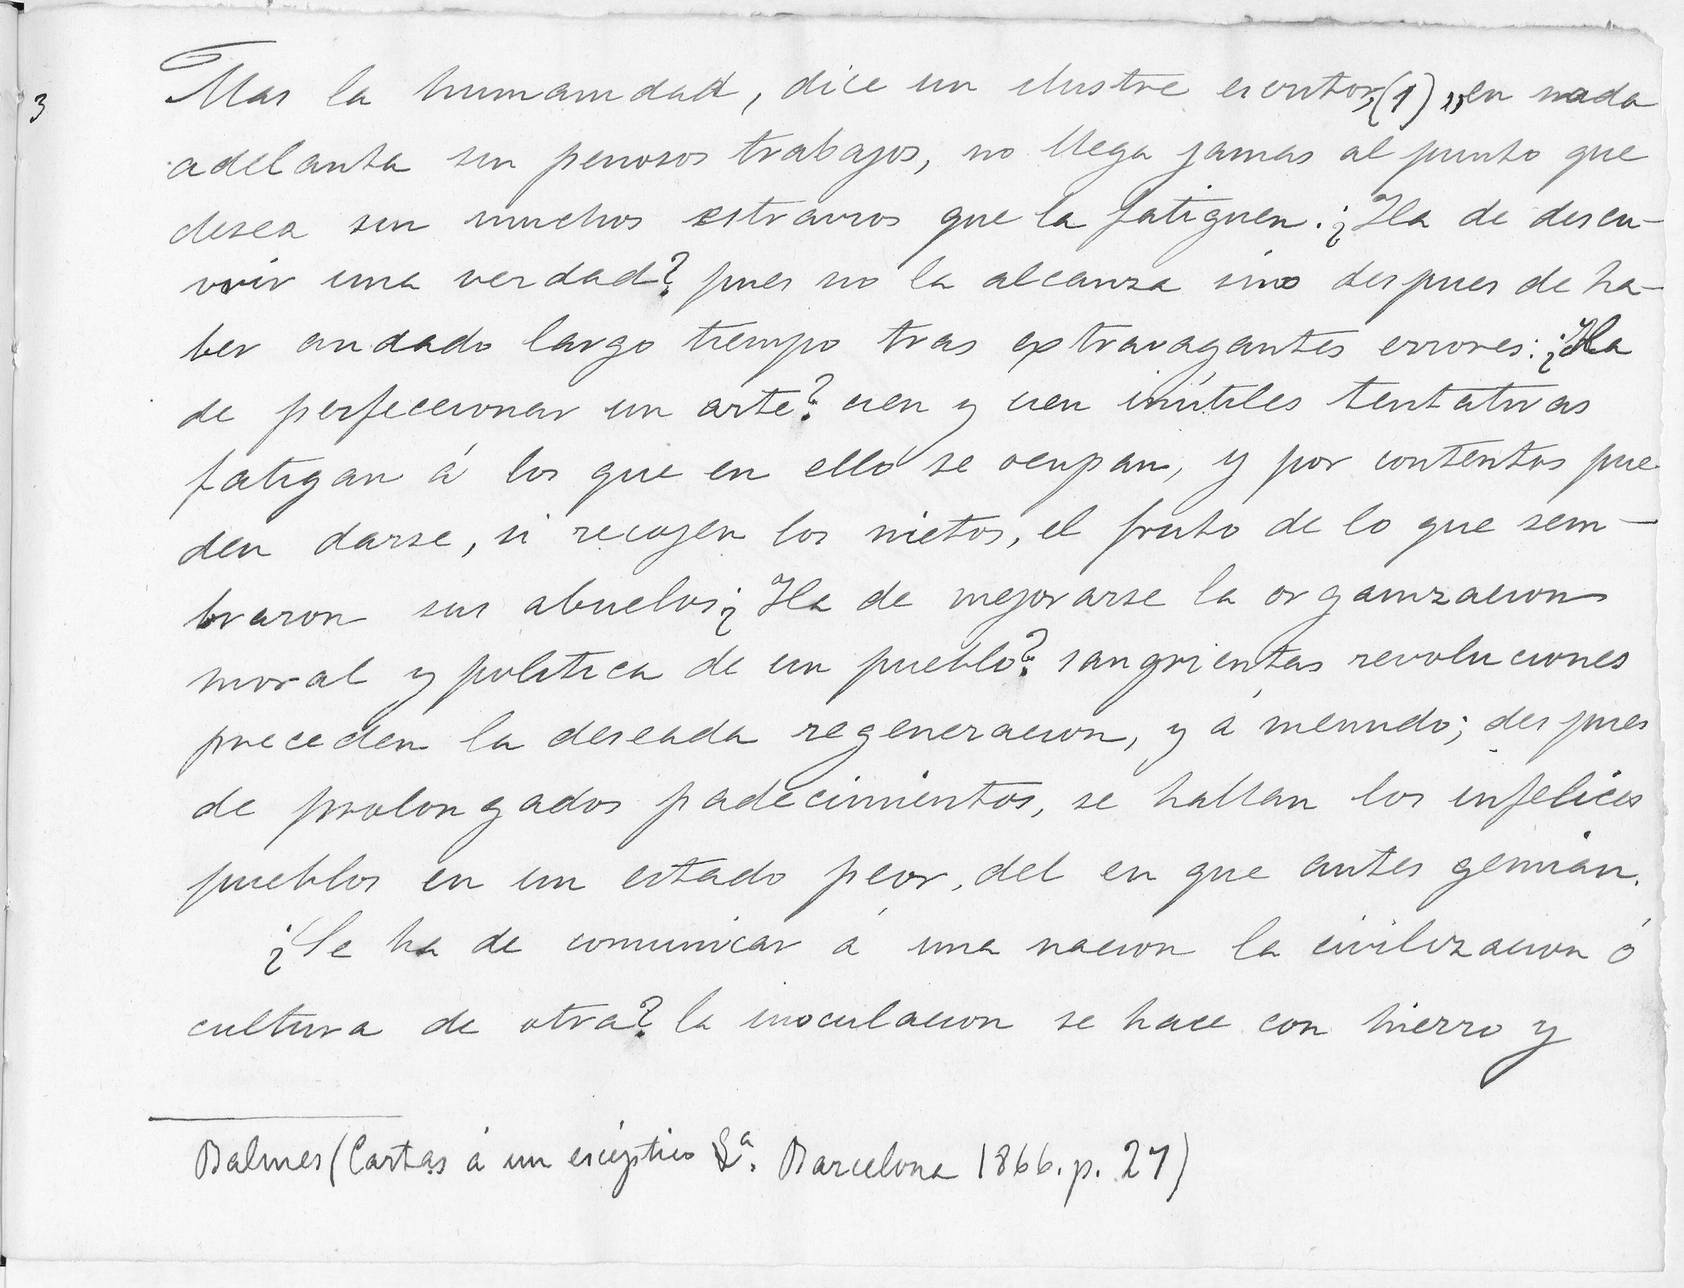 3
Mas la humanidad, dice un ilustre escritor,(1) „en nada
adelanta sin penosos trabajos, no llega jamas al punto que
desea sin muchos estravios que la fatiguen. ¿Ha de descu-
vrir una verdad? pues no la alcanza sino despues de ha-
ber andado largo tiempo tras extravagantes errores: ¿Ha
de perfeccionar un arte? cien y cien inútiles tentativas
fatigan á los que en ello se ocupan, y por contentos pue
den darse, si recojen los nietos, el fruto de lo que sem-
braron sus abuelos; ¿Ha de mejorarse la organizacion
moral y politica de un pueblo? sangrientas revoluciones
preceden la deseada regeneracion, y á menudo; despues
de prolongados padecimientos, se hallan los infelices
pueblos en un estado peor, del en que antes gemian.
¿Se ha de comunicar á una nacion la civilizacion ó
cultura de otra? la inoculacion se hace con hierro y
Balmes (Cartas á un escéptico Barcelona 1866. p. 27)